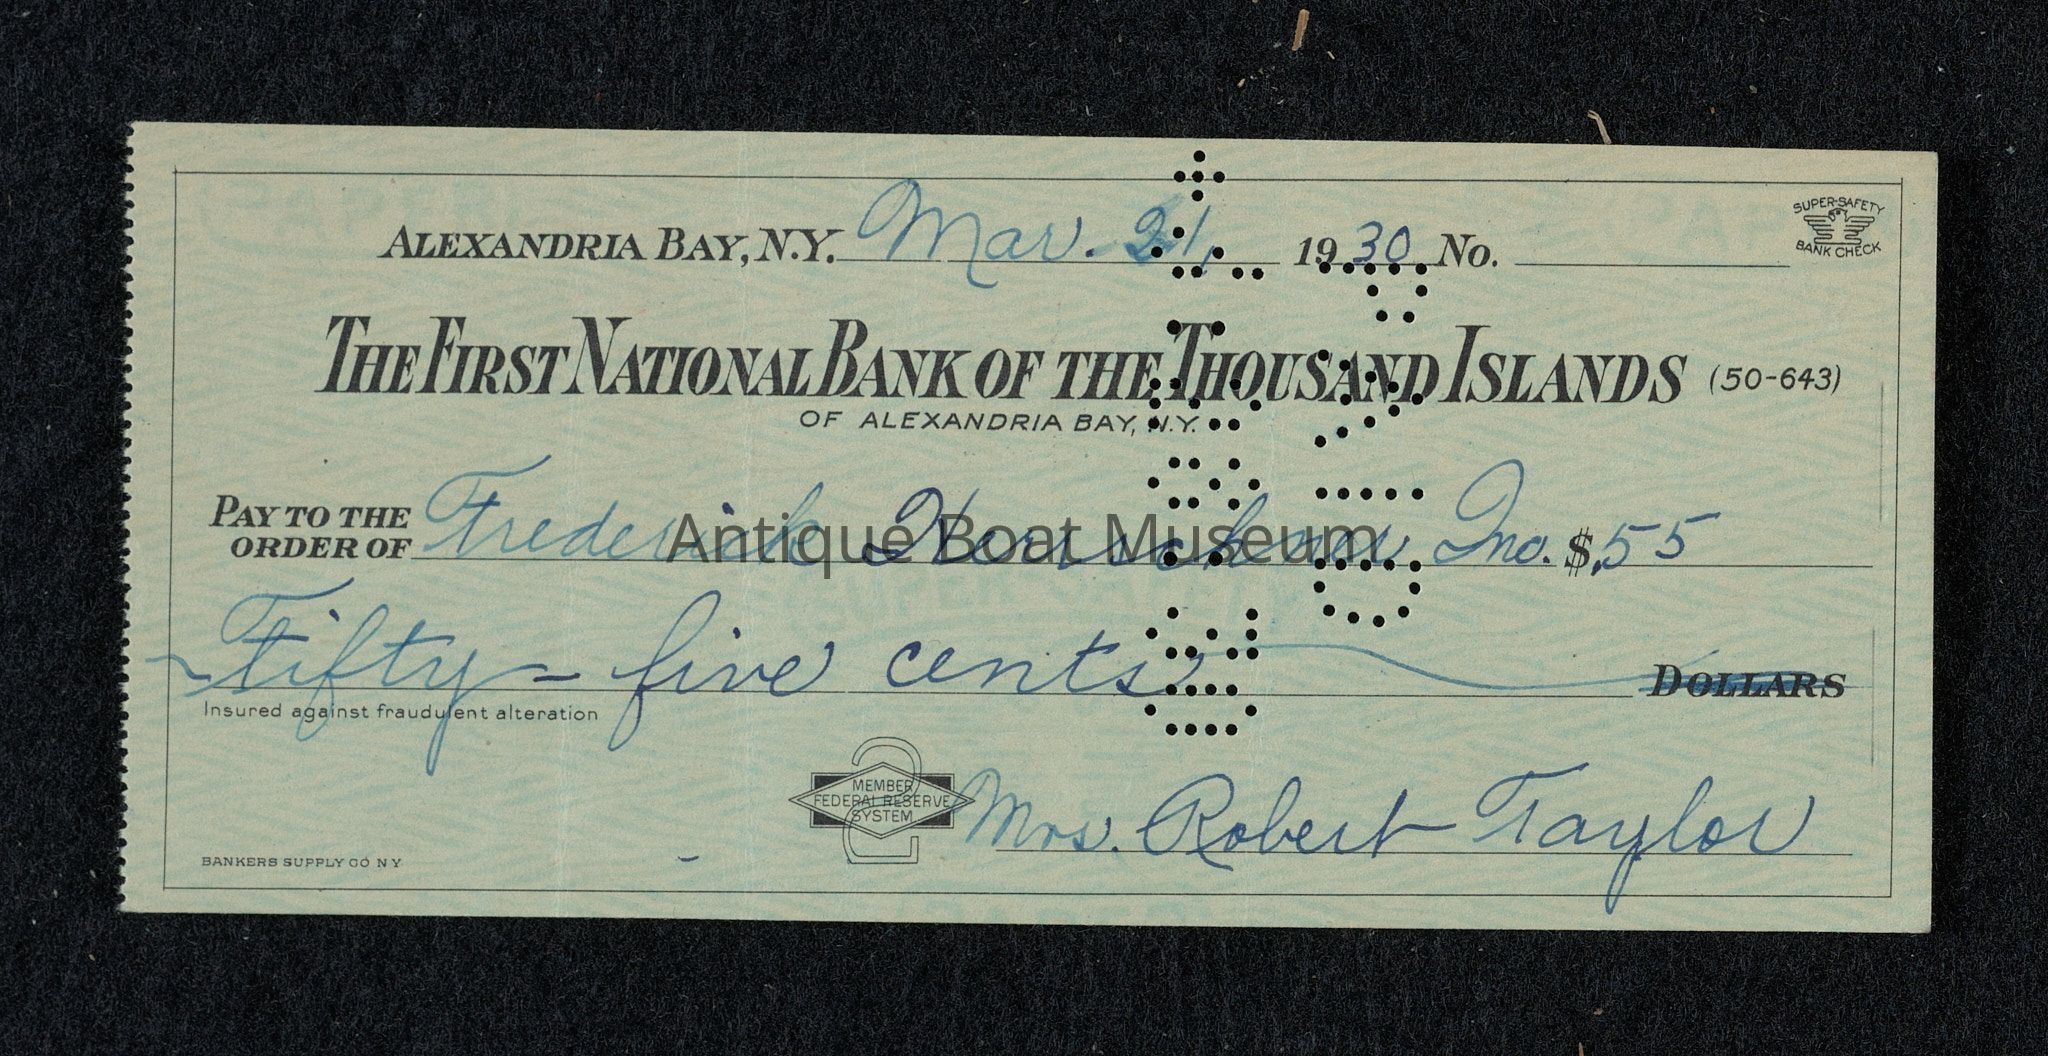 ALEXANDRIA BAY, N.Y. Mar. 21, 1930 No.
SUPER-SAFETY
BANK CHECK
THE FIRST NATIONAL BANK OF THE THOUSAND ISLANDS (50-643)
OF ALEXANDRIA BAY, N.Y.
PAY TO THE
ORDER OF Frederick Herrschner Inc. $.55
Antique Boat Museum
Fifty-five cents DOLLARS
Insured against fraudulent alteration
MEMBER
FEDERAL RESERVE
SYSTEM
Mrs. Robert Taylor
BANKERS SUPPLY CO N Y